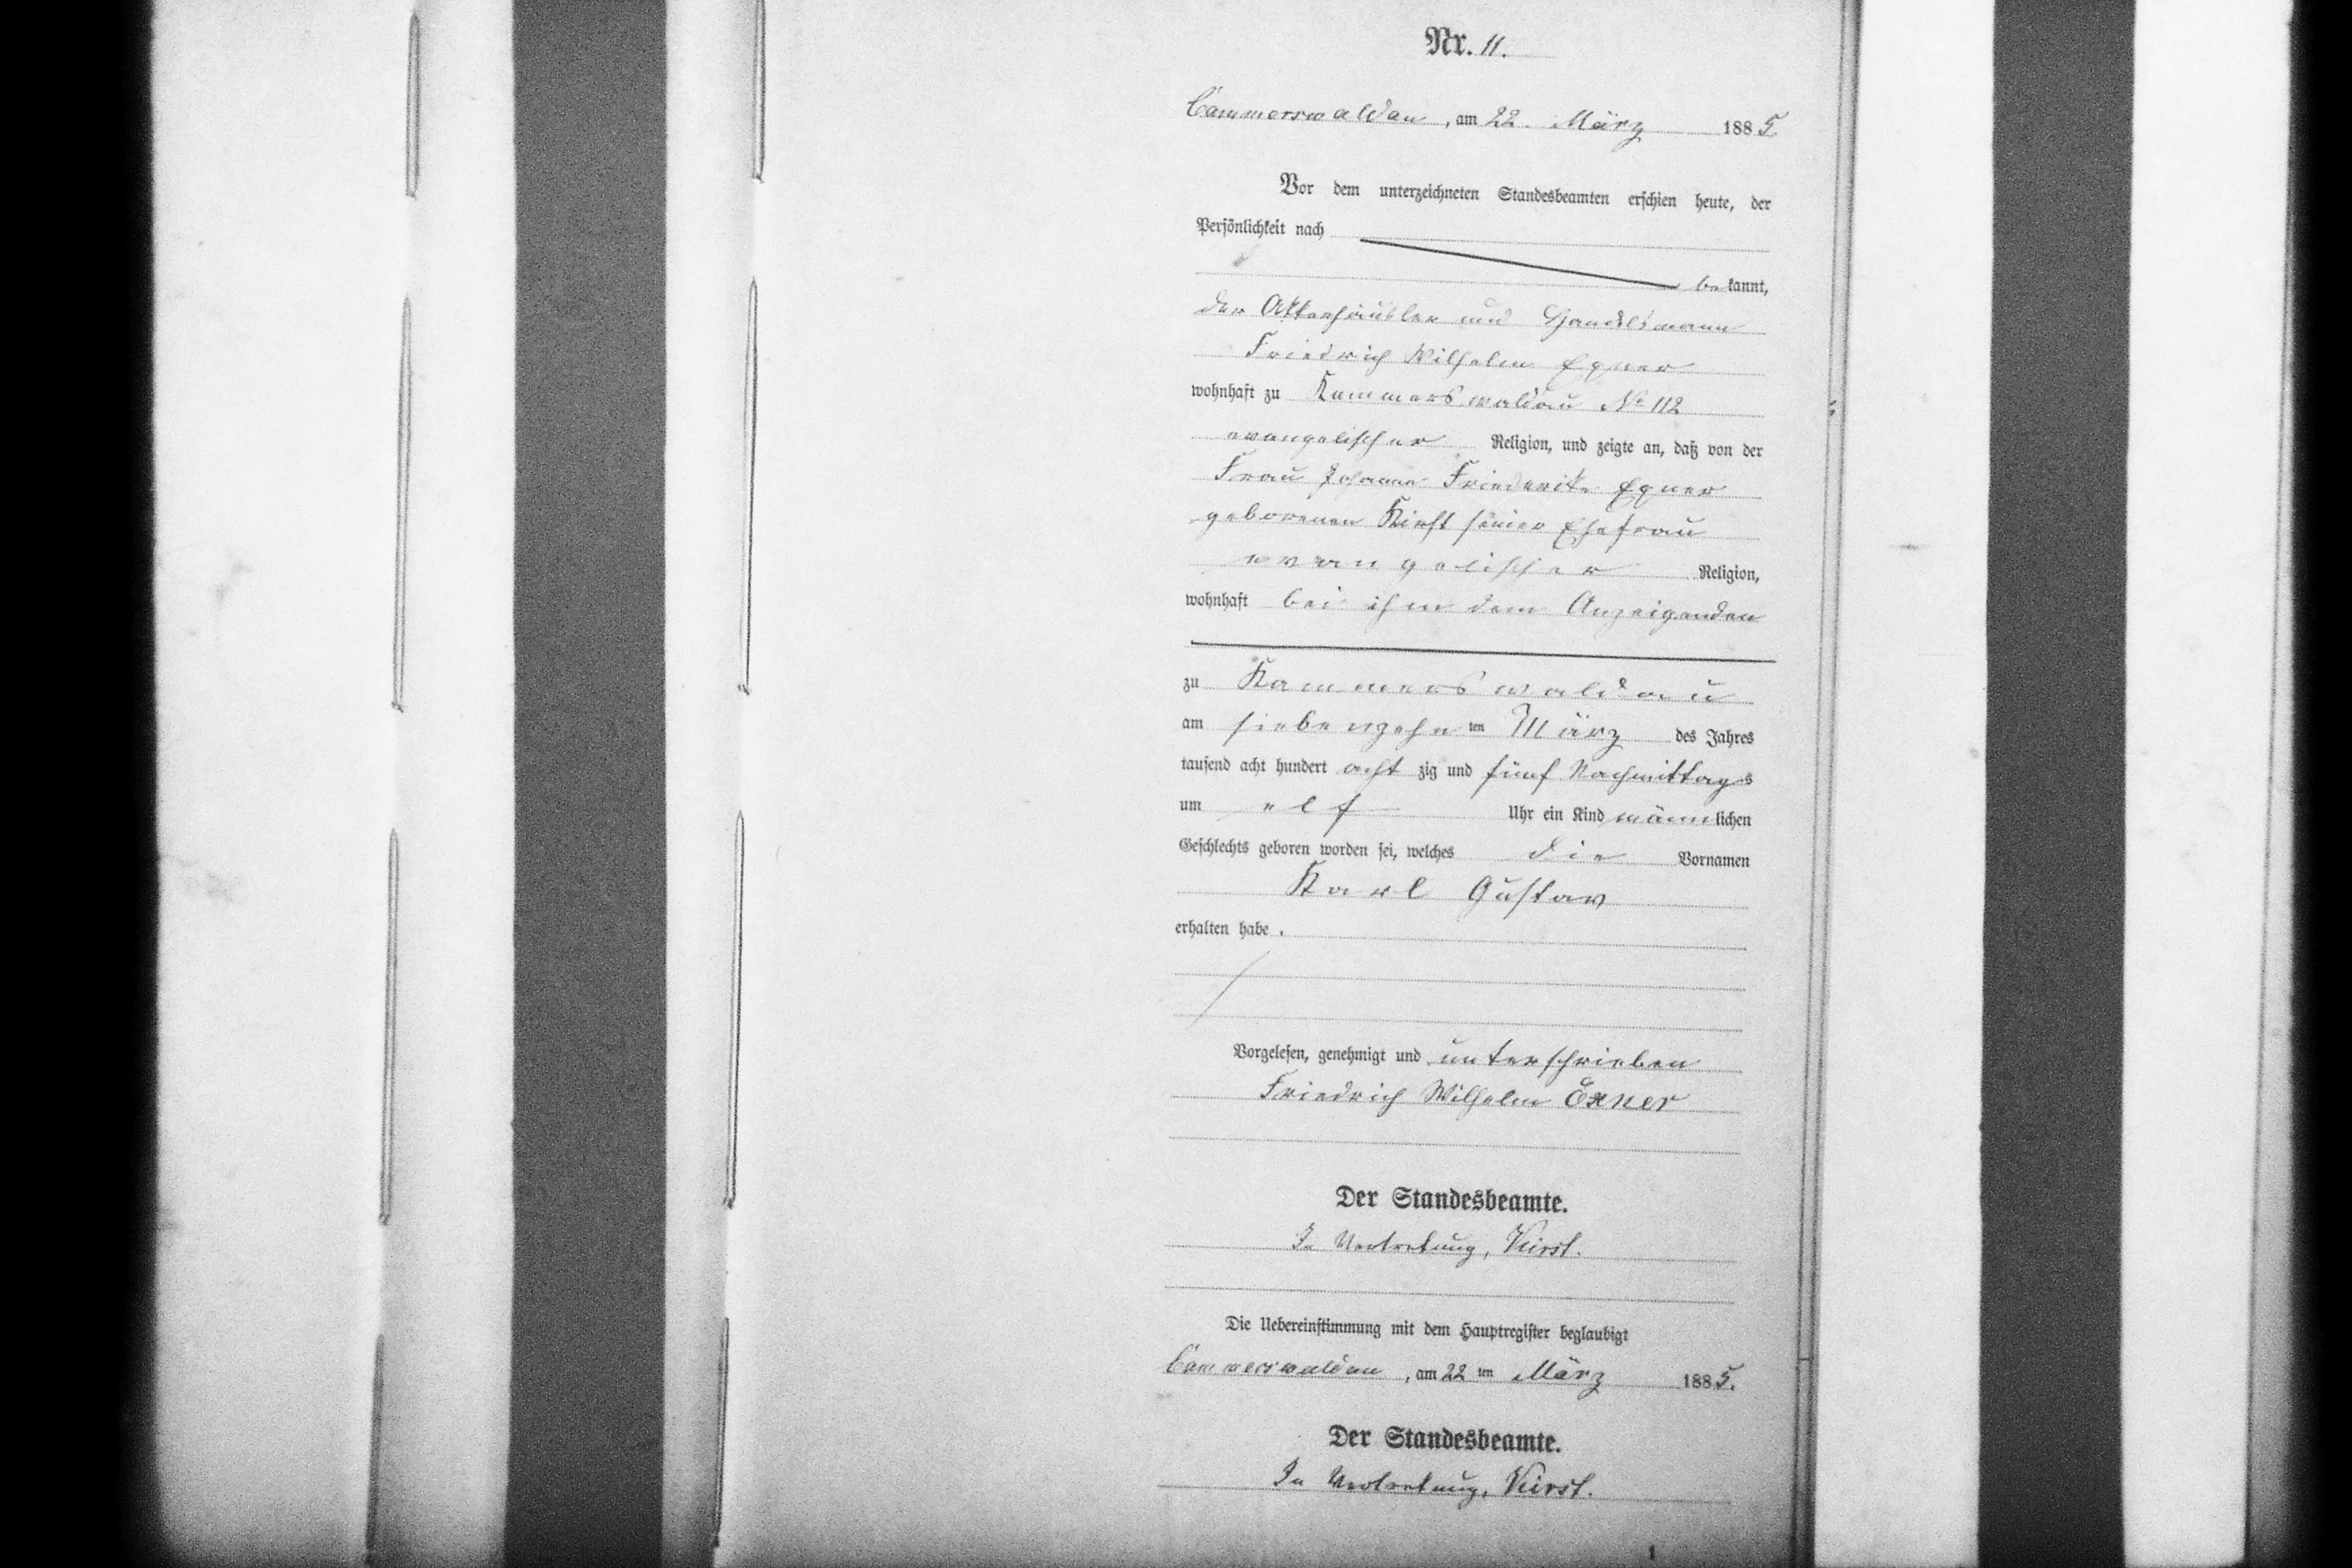 Nr. 11.
Cammerswaldau, am 22. März 1885.
Vor dem unterzeichneten Standesbeamten erschien heute, der
Persönlichkeit nach
bekannt,
der Afterhäusler und Handelsmann
Friedrich Wilhelm Exner
wohnhaft zu Kammerswaldau No 112
evangelischer Religion, und zeigte an, daß von der
Frau Johanne Friederike Exner
geborenen Kirst seiner Ehefrau
evangelischer Religion,
wohnhaft bei ihm dem Anzeigenden
zu Kammerswaldau
am siebenzehnten März des Jahres
tausend acht hundert achtzig und fünf Nachmittags
um elf Uhr ein Kind männlichen
Geschlechts geboren worden sei, welches die Vornamen
Karl Gustav
erhalten habe.
Vorgelesen, genehmigt und unterschrieben
Friedrich Wilhelm Exner
Der Standesbeamte.
In Vertretung, Kirst.
Die Uebereinstimmung mit dem Hauptregister beglaubigt
Cammerswaldau, am 22ten März 1885.
Der Standesbeamte.
In Vertretung, Kirst.